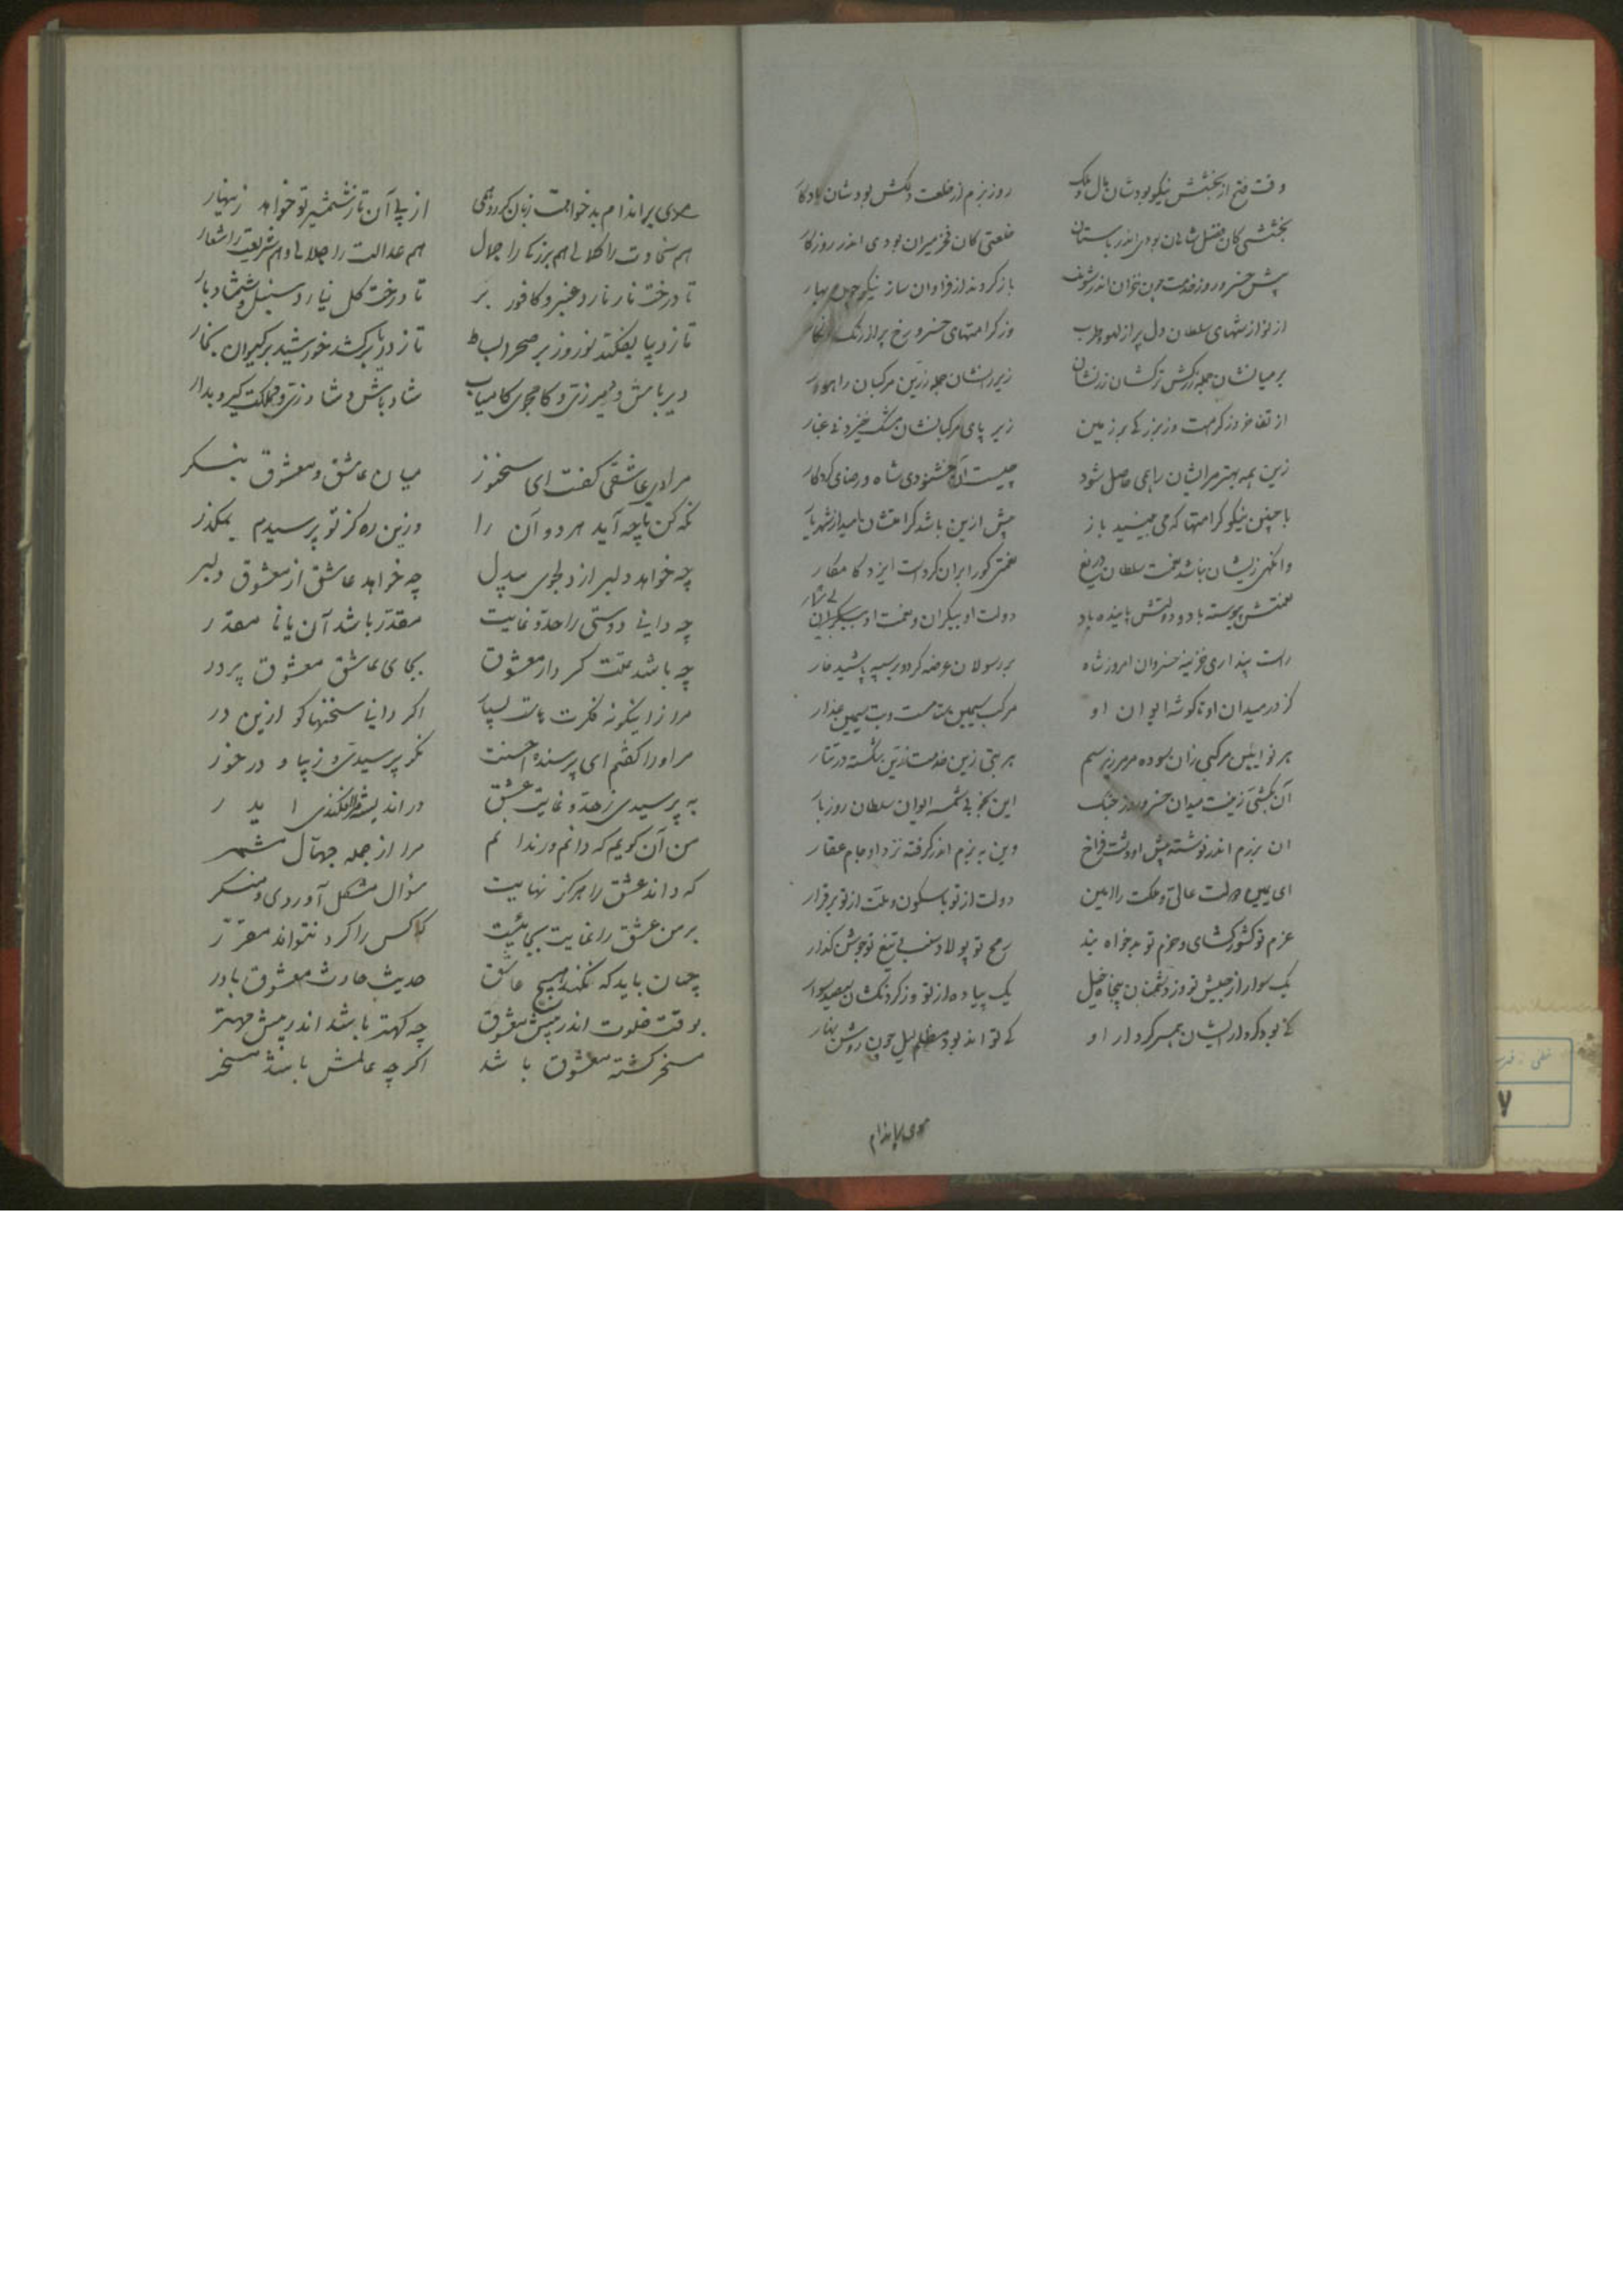 وقت فتح از بخشش نیکو بودشان مال و ملک روز بزم از خلعت دلکش بودشان یادکار
بخششی کان فضل شاهان بودی اندر باستان خلعتی کان فخر میران بودی اندر روزکار
پیش خسرو روز خدمت چون خزان اندر شوند بازکردند از فراوان ساز نیکو چون بهار
از نوازشهای سلطان دل پر از لهو و طرب وز کرامتهای خسرو رخ پر از رنک و نکار
بر میانشان جمله زرکش ترکشان زرنشان زیر رانشان جمله زرین مرکبان راهوار
از تفاخر وز کرامت وز بزرکی بر زمین زیر پای مرکبانشان مشک خیزد نی غبار
زین همه بهتر مرایشان را همی حاصل شود چیست آن خشنودی شاه و رضای کردکار
با چنین نیکو کرامتها که می بینید باز بیش ازین باشد کرامتشان امید از شهریار
وانکهی زیشان نباشد نعمت سلطان دریغ نعمتی کورا بران کردست ایزد کامکار
نعمتش پیوسته باد و دولتش پاینده باد دولت او بیکران و نعمت او بی شمار
راست پنداری خزینه خسروان امروز شاه بر رسولان عرضه کرد و بر سپه پاشید خار
کز در میدان او تا کوشه ایوان او مرکب سیمین ستامست و بت سیمین عذار
هر بتی زین خدمت زرین شکسته در تتار
آن بکشی زینت میدان خسرو روز جنک این بخوبی شمسه ایوان سلطان روز بار
ان برزم اندر نوشته پیش او دشت فراخ وین به بزم اندر کرفته نزد او جام عقار
ای یمین دولت عالی و ملکت را امین دولت از تو با سکون و ملت از تو برقرار
عزم تو کشور کشای و حزم تو بدخواه بند رمح تو پولاد سنب و تیغ تو جوشن کذار
یک سوار از جیش تو وز دشمنان پنجاه خیل یک پیاده از تو وز کردنکشان سیصد سوار
کی بود کردار ایشان همسر کردار او کی تواند بود مظلم لیل چون روشن نهار
موی بر اندام
موی بر اندام بدخواهت زبان کردد همی از پی آن تا ز شمشیر تو خواهد زینهار
هم سخاوت را کمالی هم بزرکی را جمال هم عدالت را جلالی و هم شریعت را شعار
تا درخت نار نارد عنبر و کافور بر تا درخت کل نیارد سنبل و شمشاد بار
تا ز دیبا بفکند نوروز بر صحرا بساط تا ز دریا برکشد خورشید بر کیوان بخار
دیر باش و دیر زی و کام جوی و کام یاب شاد باش و شاد زی و مملکت کیر و بدار
مرا دی عاشقی کفت ای سخنور میان عاشق و معشوق بنکر
نکه کن تا چه آید هر دوان را وزین ره کز تو پرسیدم بمکذر
چه خواهد دلبر از دلجوی بیدل چه خواهد عاشق از معشوق دلبر
چه دانی دوستی را حد و غایت مقدر باشد آن یا نا مقدر
چه باشد علت کردار معشوق بجای عاشق معشوق پرور
مرا زاینکونه فکرت هاست بسیار اکر دانی سخنها کو ازین در
مر اورا کفتم ای پرسنده احسنت نکو پرسیدی و زیبا و درخور
به پرسیدی ز حد و غایت عشق در اندیشه فکندی ایدر
من آن کویم که دانم ورندانم مرا از جمله جهال مشمر
که داند عشق را هرکز نهایت سؤال مشکل آوردی و منکر
بر من عشق را غایت بجائیست کجا کس را کرد نتواند مقرر
چنان باید که نکند هیچ عاشق حدیث حادث معشوق باور
بوقت خلوت اندر پیش معشوق چه کهتر باشد اندر پیش مهتر
مسخر کشته معشوق باشد اکر چه عالمش باشد مسخر